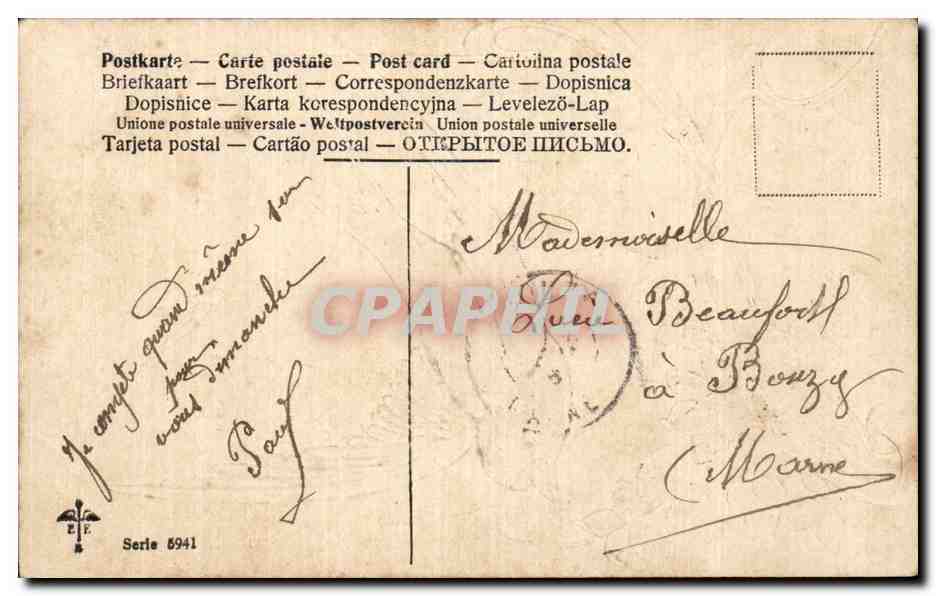 Postkarte — Carte postale — Post card — Cartolina postale
Briefkaart — Brefkort — Correspondenzkarte — Dopisnica
Dopisnice — Karta korespondencyjna — Levelező-Lap
Unione postale universale - Weltpostverein Union postale universelle
Tarjeta postal — Cartão postal — ОТКРЫТОЕ ПИСЬМО.
Je compte quand même sur
vous pour
dimanche
Paul
Mademoiselle
Lucie Beaufort
à Bouzy
(Marne)
CPAPHIL
E F
Serie 5941